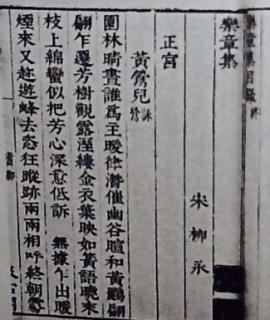 樂章集
宋 柳永
正宮
黃鶯兒 詠鶯
園林晴晝誰爲主暖律潛催幽谷暄和黃鸝翩
翩乍遷芳樹觀露溼縷金衣葉映如黃語曉來
枝上綿蠻似把芳心深意低訴 無據乍出暖
煙來又趁遊蜂去恣狂蹤跡兩兩相呼終朝霧